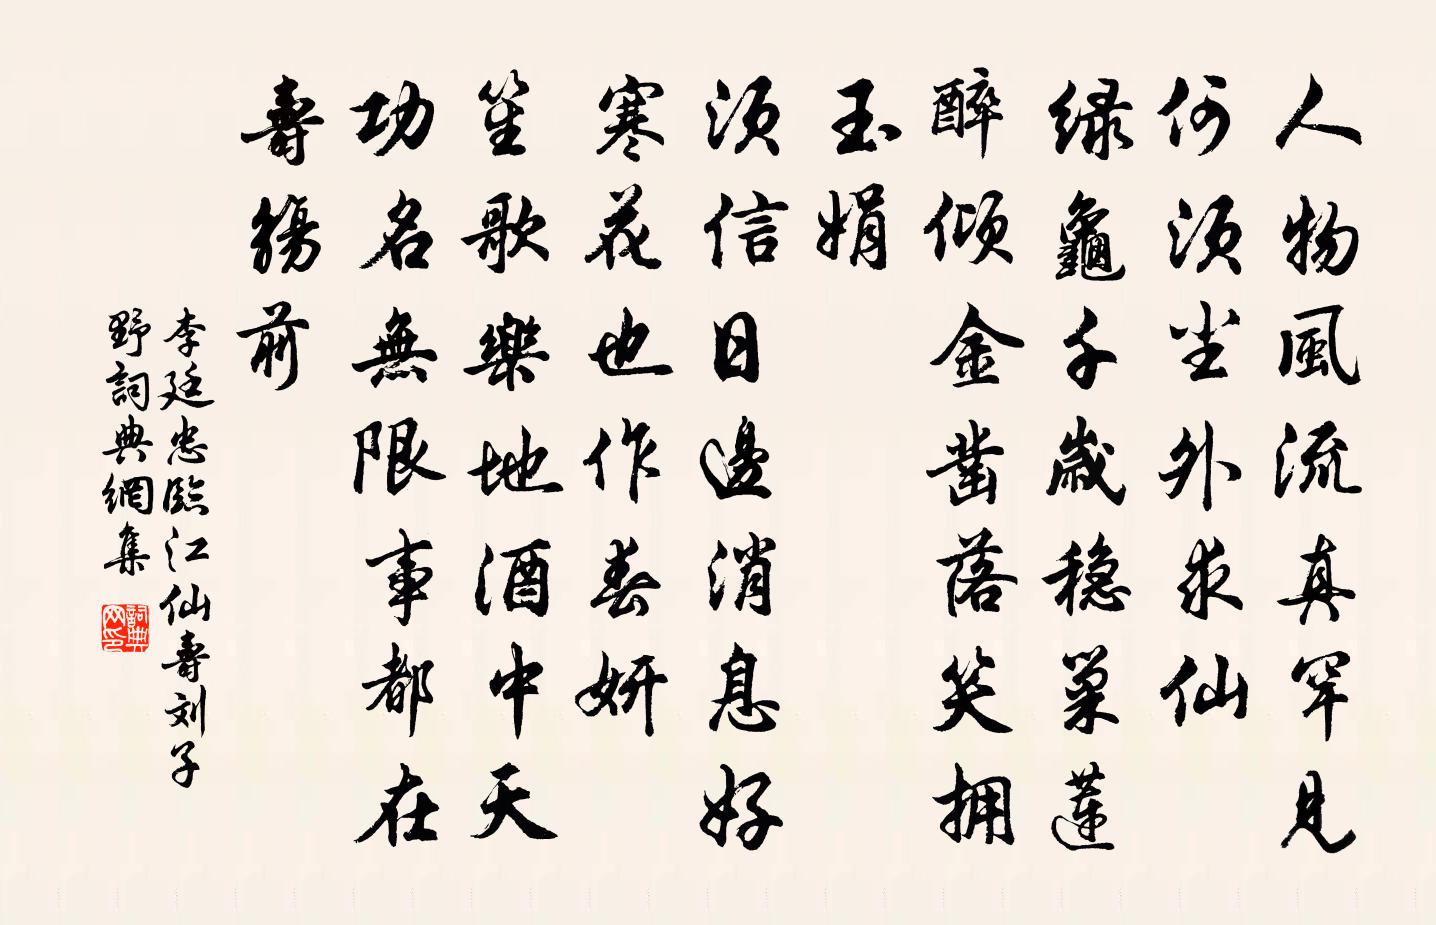 人物風流真罕見
何須尘外求仙
绿龜千歲穏巢蓮
醉倾金凿落笑拥
玉娟
須信日邊消息好
寒花也作春妍
笙歌樂地酒中天
功名無限事都在
壽觴前
李廷忠臨江仙壽刘子
野詞典網集
詞典网印